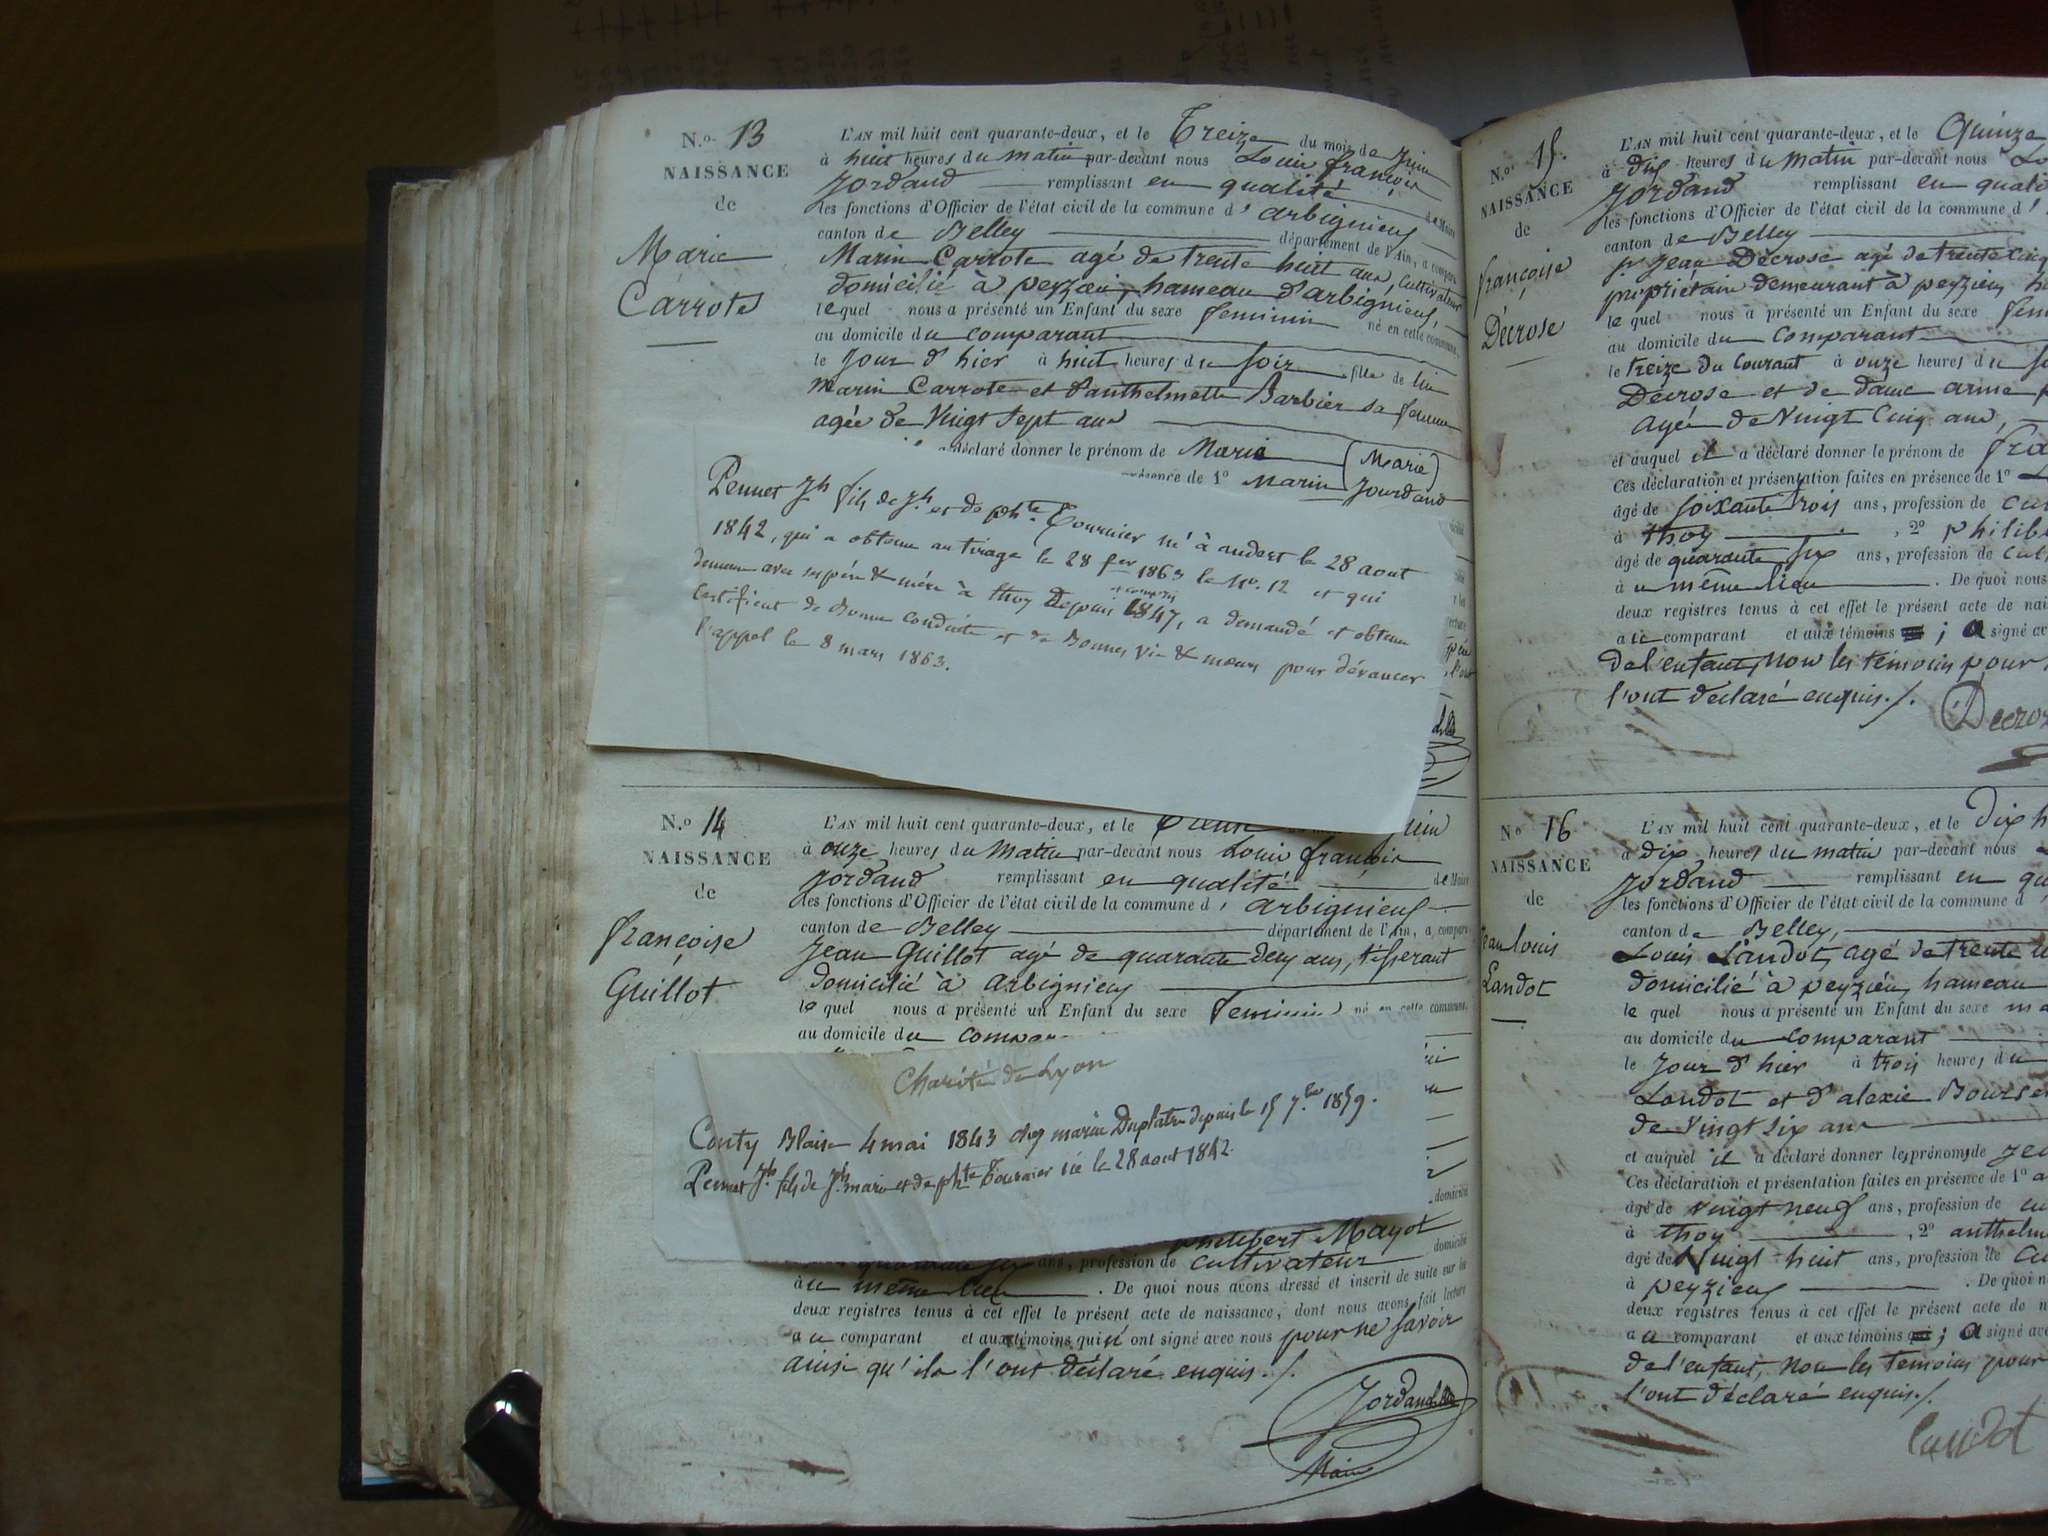 N.º 13
NAISSANCE
de
Marie
Carrote
L'AN mil huit cent quarante-deux, et le Treize du mois de Juin
à huit heures du matin par-devant nous Louis françois
Jordand remplissant en qualité de Maire
les fonctions d'Officier de l'état civil de la commune d' arbignieu
canton de Belley département de l'Ain, a comparu
Marin Carrote agé de trente huit ans, Cultivateur
domicilié à peyzieu, hameau d'arbignieu,
lequel nous a présenté un Enfant du sexe feminin né en cette commune,
au domicile du comparant
le Jour d'hier à huit heures du soir fille de lui
Marin Carrote et d'anthelmette Barbier sa femme
agée de Vingt sept ans
a déclaré donner le prénom de Marie (Marie)
présence de 1º Marin Jourdand
Pennet Jh fils de Jh et de phte Tournier né à andert le 28 aout
1842, qui a obtenu au tirage le 28 fer 1863 le No. 12 et qui
demeure avec ses père & mère à thoy Depuis et compris 1847, a demandé et obtenu
Certificat de Bonne conduite et de Bonnes vie & mœurs pour dévancer
l'appel le 8 mars 1863.
N.º 14
NAISSANCE
de
françoise
Guillot
L'AN mil huit cent quarante-deux, et le Treize Juin
à onze heures du Matin par-devant nous Louis françois
Jordand remplissant en qualité de Maire
les fonctions d'Officier de l'état civil de la commune d' arbignieu
canton de Belley département de l'Ain, a comparu
Jean Guillot agé de quarante deux ans, tisserant
domicilié à arbignieu
lequel nous a présenté un Enfant du sexe feminin né en cette commune,
au domicile du compar
Charité de Lyon
Conty Blaise 4 mai 1843 chez marie Duplatre depuis le 15 7.bre 1859.
Pennet Jh fils de Jh marie et de phte Tournier né le 28 aout 1842.
domicilié
philibert Mayot
quarante six ans, profession de cultivateur domicilié
à u même lieu . De quoi nous avons dressé et inscrit de suite sur les
deux registres tenus à cet effet le présent acte de naissance, dont nous avons fait lecture
a u comparant et aux témoins qui n'ont signé avec nous pour ne savoir
ainsi qu'ils l'ont déclaré enquis./.
Jordand
Maire
N.º 15.
NAISSANCE
de
françoise
Décrose
L'AN mil huit cent quarante-deux, et le Quinze
à dix heures du Matin par-devant nous Lo
Jordand remplissant en quali
les fonctions d'Officier de l'état civil de la commune d'
canton de Belley
Jean Décrose agé de trente cinq
propriétaire demeurant à peyzieu h
lequel nous a présenté un Enfant du sexe fem
au domicile du Comparant
le treize du Courant à onze heures du so
Décrose et de dame anne p
agée de Vingt Cinq ans,
et auquel il a déclaré donner le prénom de fra
Ces déclaration et présentation faites en présence de 1º
âgé de soixante trois ans, profession de cul
à thoy , 2º philib
âgé de quarante six ans, profession de cul
à u même lieu . De quoi nous
deux registres tenus à cet effet le présent acte de nai
a u comparant et aux témoins ; a signé av
de l'enfant, Non les témoins pour
l'ont déclaré enquis./.
Decro
Nº 16
NAISSANCE
de
Jean louis
Landot
L'AN mil huit cent quarante-deux, et le Dix h
à dix heures du matin par-devant nous
Jordand remplissant en qu
les fonctions d'Officier de l'état civil de la commune d'
canton de Belley,
Louis Landot, agé de trente
domicilié à peyzieu, hameau
lequel nous a présenté un Enfant du sexe ma
au domicile du comparant
le Jour d'hier à trois heures du
Landot et d'alexie Bourse
de Vingt six ans
et auquel il a déclaré donner les prénoms de Jea
Ces déclaration et présentation faites en présence de 1º a
âgé de vingt neuf ans, profession de cu
à thoy , 2º anthelm
âgé de Vingt huit ans, profession de Cu
à peyzieu . De quoi n
deux registres tenus à cet effet le présent acte de n
a u comparant et aux témoins ; a signé ave
de l'enfant, Non les temoins pour
l'ont déclaré enquis./.
landot